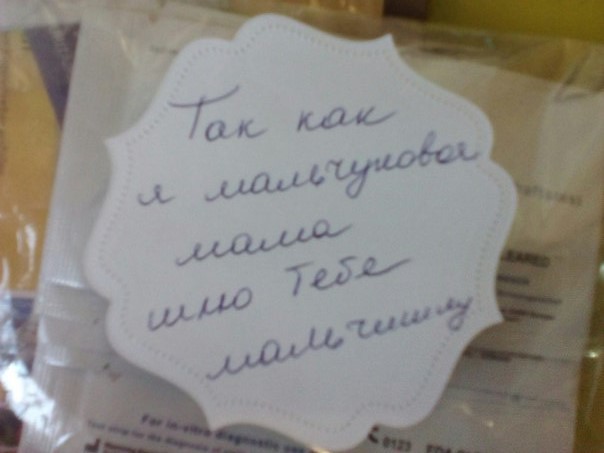 Так как
я мальчуковая
мама
шлю Тебе
мальчишку
LEARED
For in-vitro diagnostic use
0123